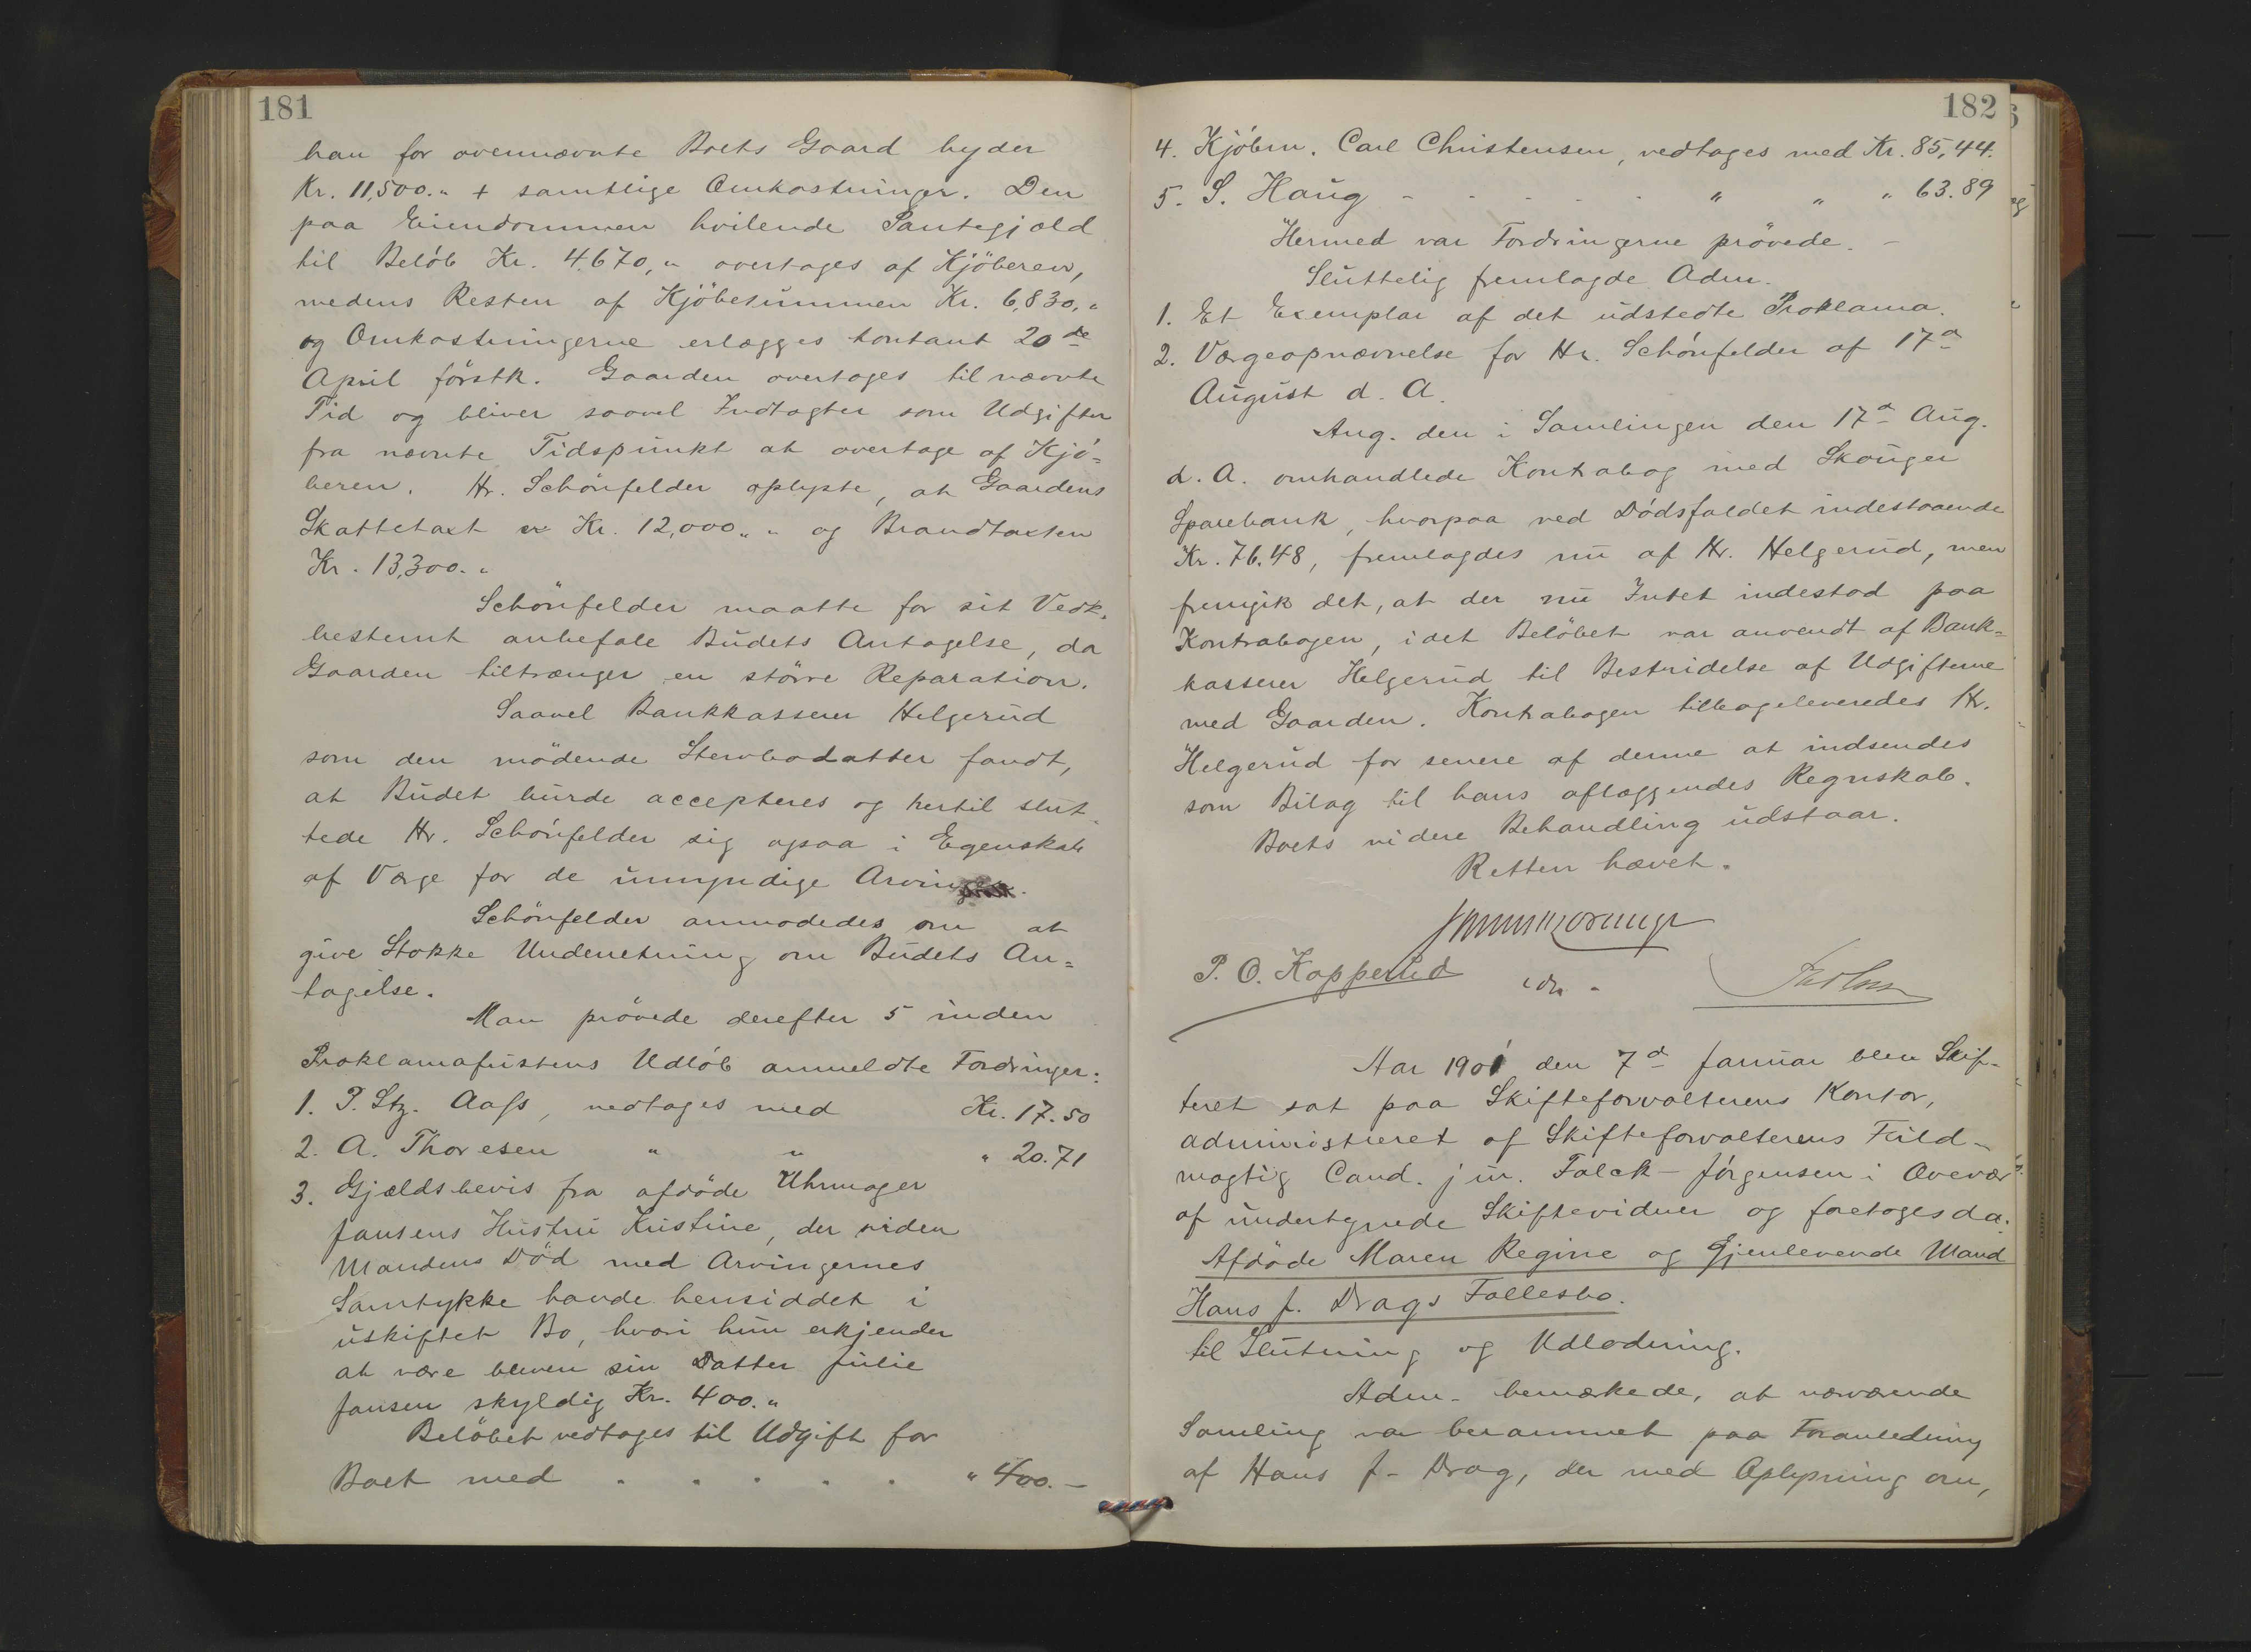 181
han for ovennævnte Boets Gaard byder
Kr. 11,500.„ + samtlige Omkostninger. Den
paa Eiendommen hvilende Pantegjæld
til Beløb Kr. 4.670,„ overtages af Kjøberen,
medens Resten af Kjøbesummen Kr. 6,830,„
og Omkostningerne erlægges kontant 20de
April førstk. Gaarden overtages til nævnte
Tid og bliver saavel Indtægter som Udgifter
fra nævnte Tidspunkt at overtage af Kjø-
beren. Hr. Schönfelder oplyste, at Gaardens
Skattetaxt er Kr. 12,000„ „ og Brandtaxten
Kr. 13,300.„
Schönfelder maatte for sit Vedk.
bestemt anbefale Budets Antagelse, da
Gaarden tiltrænger en større Reparation.
Saavel Bankkasserer Helgerud
som den mødende Stervbodatter fandt,
at Budet burde accepteres og hertil slut-
tede Hr. Schönfelder sig ogsaa i Egenskab
af Værge for de umyndige Arvinger.
Schönfelder anmodedes om at
give Stokke Underretning om Budets An=
tagelse.
Man prøvede derefter 5 inden
Proklamafristens Udløb anmeldte Fordringer:
1. P. Stz. Aass, vedtages med Kr. 17.50
2. A. Thoresen „ „ „ 20.71
3. Gjældsbevis fra afdøde Uhrmager
Jansens Hustru Kristine, der siden
Mandens Død med Arvingernes
Samtykke havde hensiddet i
uskiftet Bo, hvori hun erkjender
at være bleven sin Datter Julie
Jansen skyldig Kr. 400.„
Beløbet vedtages til Udgift for
Boet med . . . . . „ 400.–
182
4. Kjøbm. Carl Christensen, vedtages med Kr. 85,44.
5. S. Haug - - - - - „ „ „ 63.89
Hermed var Fordringerne prøvede. –
Sluttelig fremlagde Adm.
1. Et Exemplar af det udstedte Proklama.
2. Værgeopnævnelse for Hr. Schönfelder af 17d
August d. A.
Ang. den i Samlingen den 17d Aug.
d. A. omhandlede Kontrabog med Skouger
Sparebank, hvorpaa ved Dødsfaldet indestaaende
Kr. 76.48, fremlagdes nu af Hr. Helgerud, men
fremgik det, at der nu Intet indestod paa
Kontrabogen, idet Beløbet var anvendt af Bank=
kasserer Helgerud til Bestridelse af Udgifterne
med Gaarden. Kontrabogen tilbageleveredes Hr.
Helgerud for senere af denne at indsendes
som Bilag til hans aflæggendes Regnskab.
Boets videre Behandling udstaar.
Retten hævet.
P. O. Kopperud
Aar 1901 den 7d Januar blev Skif-
teret sat paa Skifteforvalterens Kontor,
administreret af Skifteforvalterens Fuld-
mægtig Cand. jur. Falck-Jørgensen i Overvær
af undertegnede Skiftevidner og foretoges da:
Afdøde Maren Regine og Gjenlevende Mand
Hans J. Drags Fællesbo.
til Slutning og Udlodning.
Adm. bemærkede, at nærværende
Samling var berammet paa Foranledning
af Hans J. Drag, der med Oplysning om,